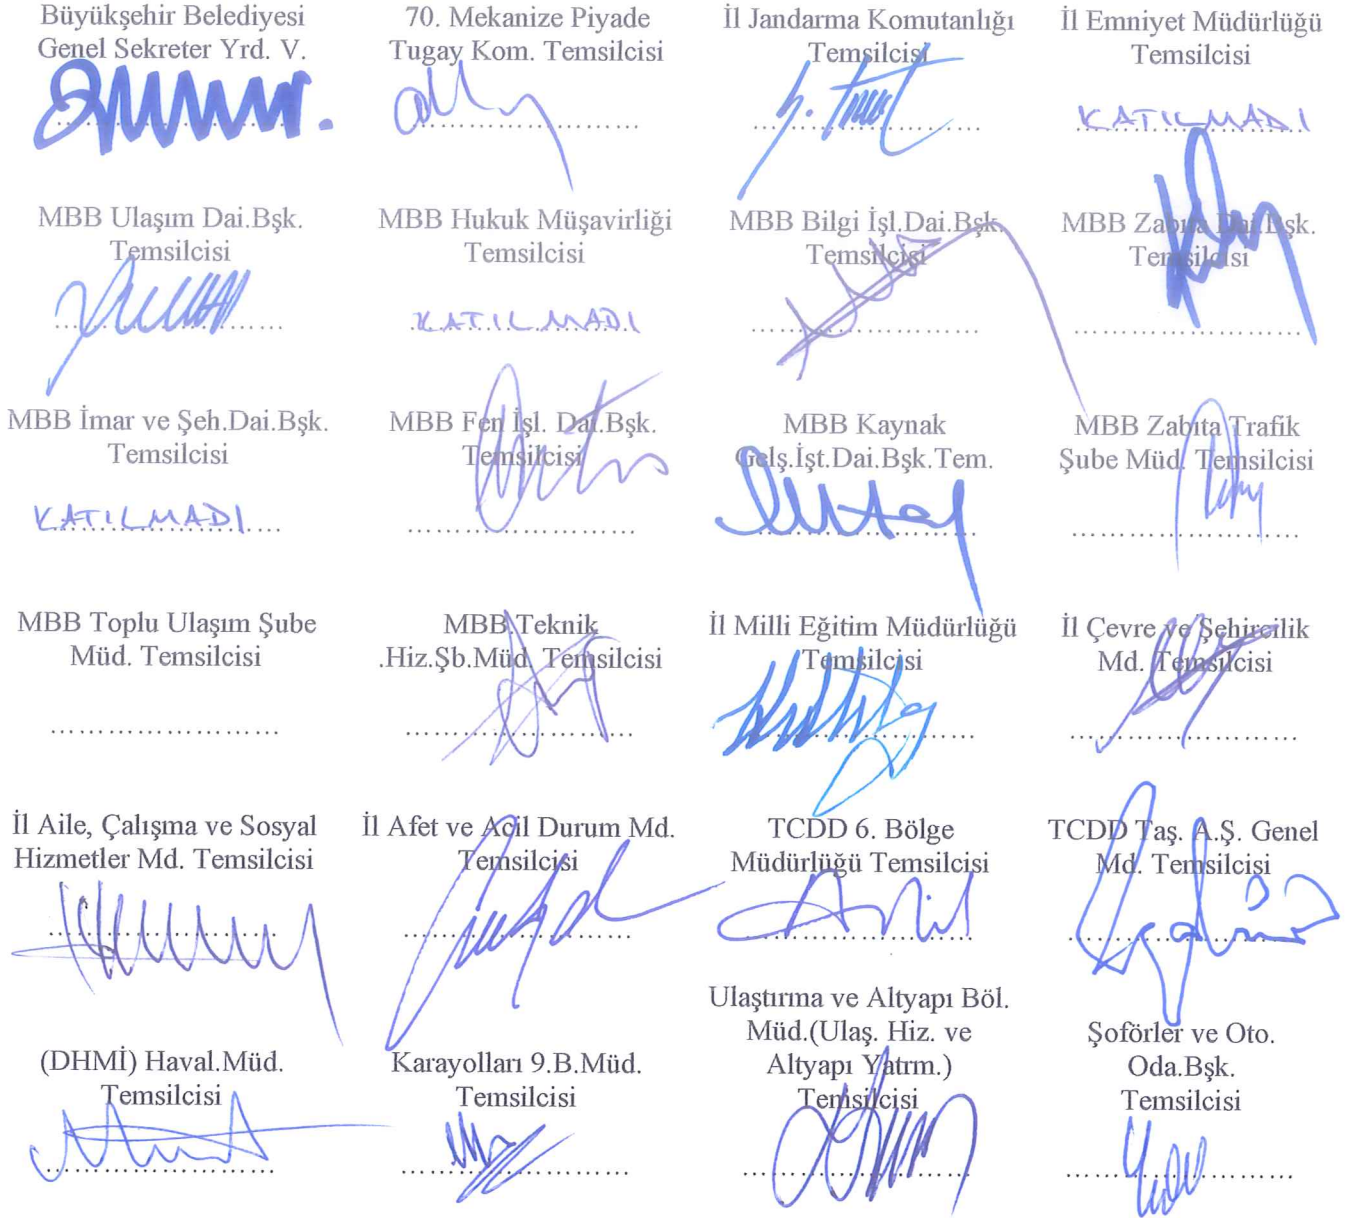 Büyükşehir Belediyesi
Genel Sekreter Yrd. V.
70. Mekanize Piyade
Tugay Kom. Temsilcisi
İl Jandarma Komutanlığı
Temsilcisi
İl Emniyet Müdürlüğü
Temsilcisi
KATILMADI
MBB Ulaşım Dai.Bşk.
Temsilcisi
MBB Hukuk Müşavirliği
Temsilcisi
KATILMADI
MBB Bilgi İşl.Dai.Bşk.
Temsilcisi
MBB Zabıta Dai.Bşk.
Temsilcisi
MBB İmar ve Şeh.Dai.Bşk.
Temsilcisi
KATILMADI
MBB Fen İşl. Dai.Bşk.
Temsilcisi
MBB Kaynak
Gelş.İşt.Dai.Bşk.Tem.
MBB Zabıta Trafik
Şube Müd. Temsilcisi
MBB Toplu Ulaşım Şube
Müd. Temsilcisi
MBB Teknik
.Hiz.Şb.Müd. Temsilcisi
İl Milli Eğitim Müdürlüğü
Temsilcisi
İl Çevre ve Şehircilik
Md. Temsilcisi
İl Aile, Çalışma ve Sosyal
Hizmetler Md. Temsilcisi
İl Afet ve Acil Durum Md.
Temsilcisi
TCDD 6. Bölge
Müdürlüğü Temsilcisi
TCDD Taş. A.Ş. Genel
Md. Temsilcisi
(DHMİ) Haval.Müd.
Temsilcisi
Karayolları 9.B.Müd.
Temsilcisi
Ulaştırma ve Altyapı Böl.
Müd.(Ulaş. Hiz. ve
Altyapı Yatrm.)
Temsilcisi
Şoförler ve Oto.
Oda.Bşk.
Temsilcisi